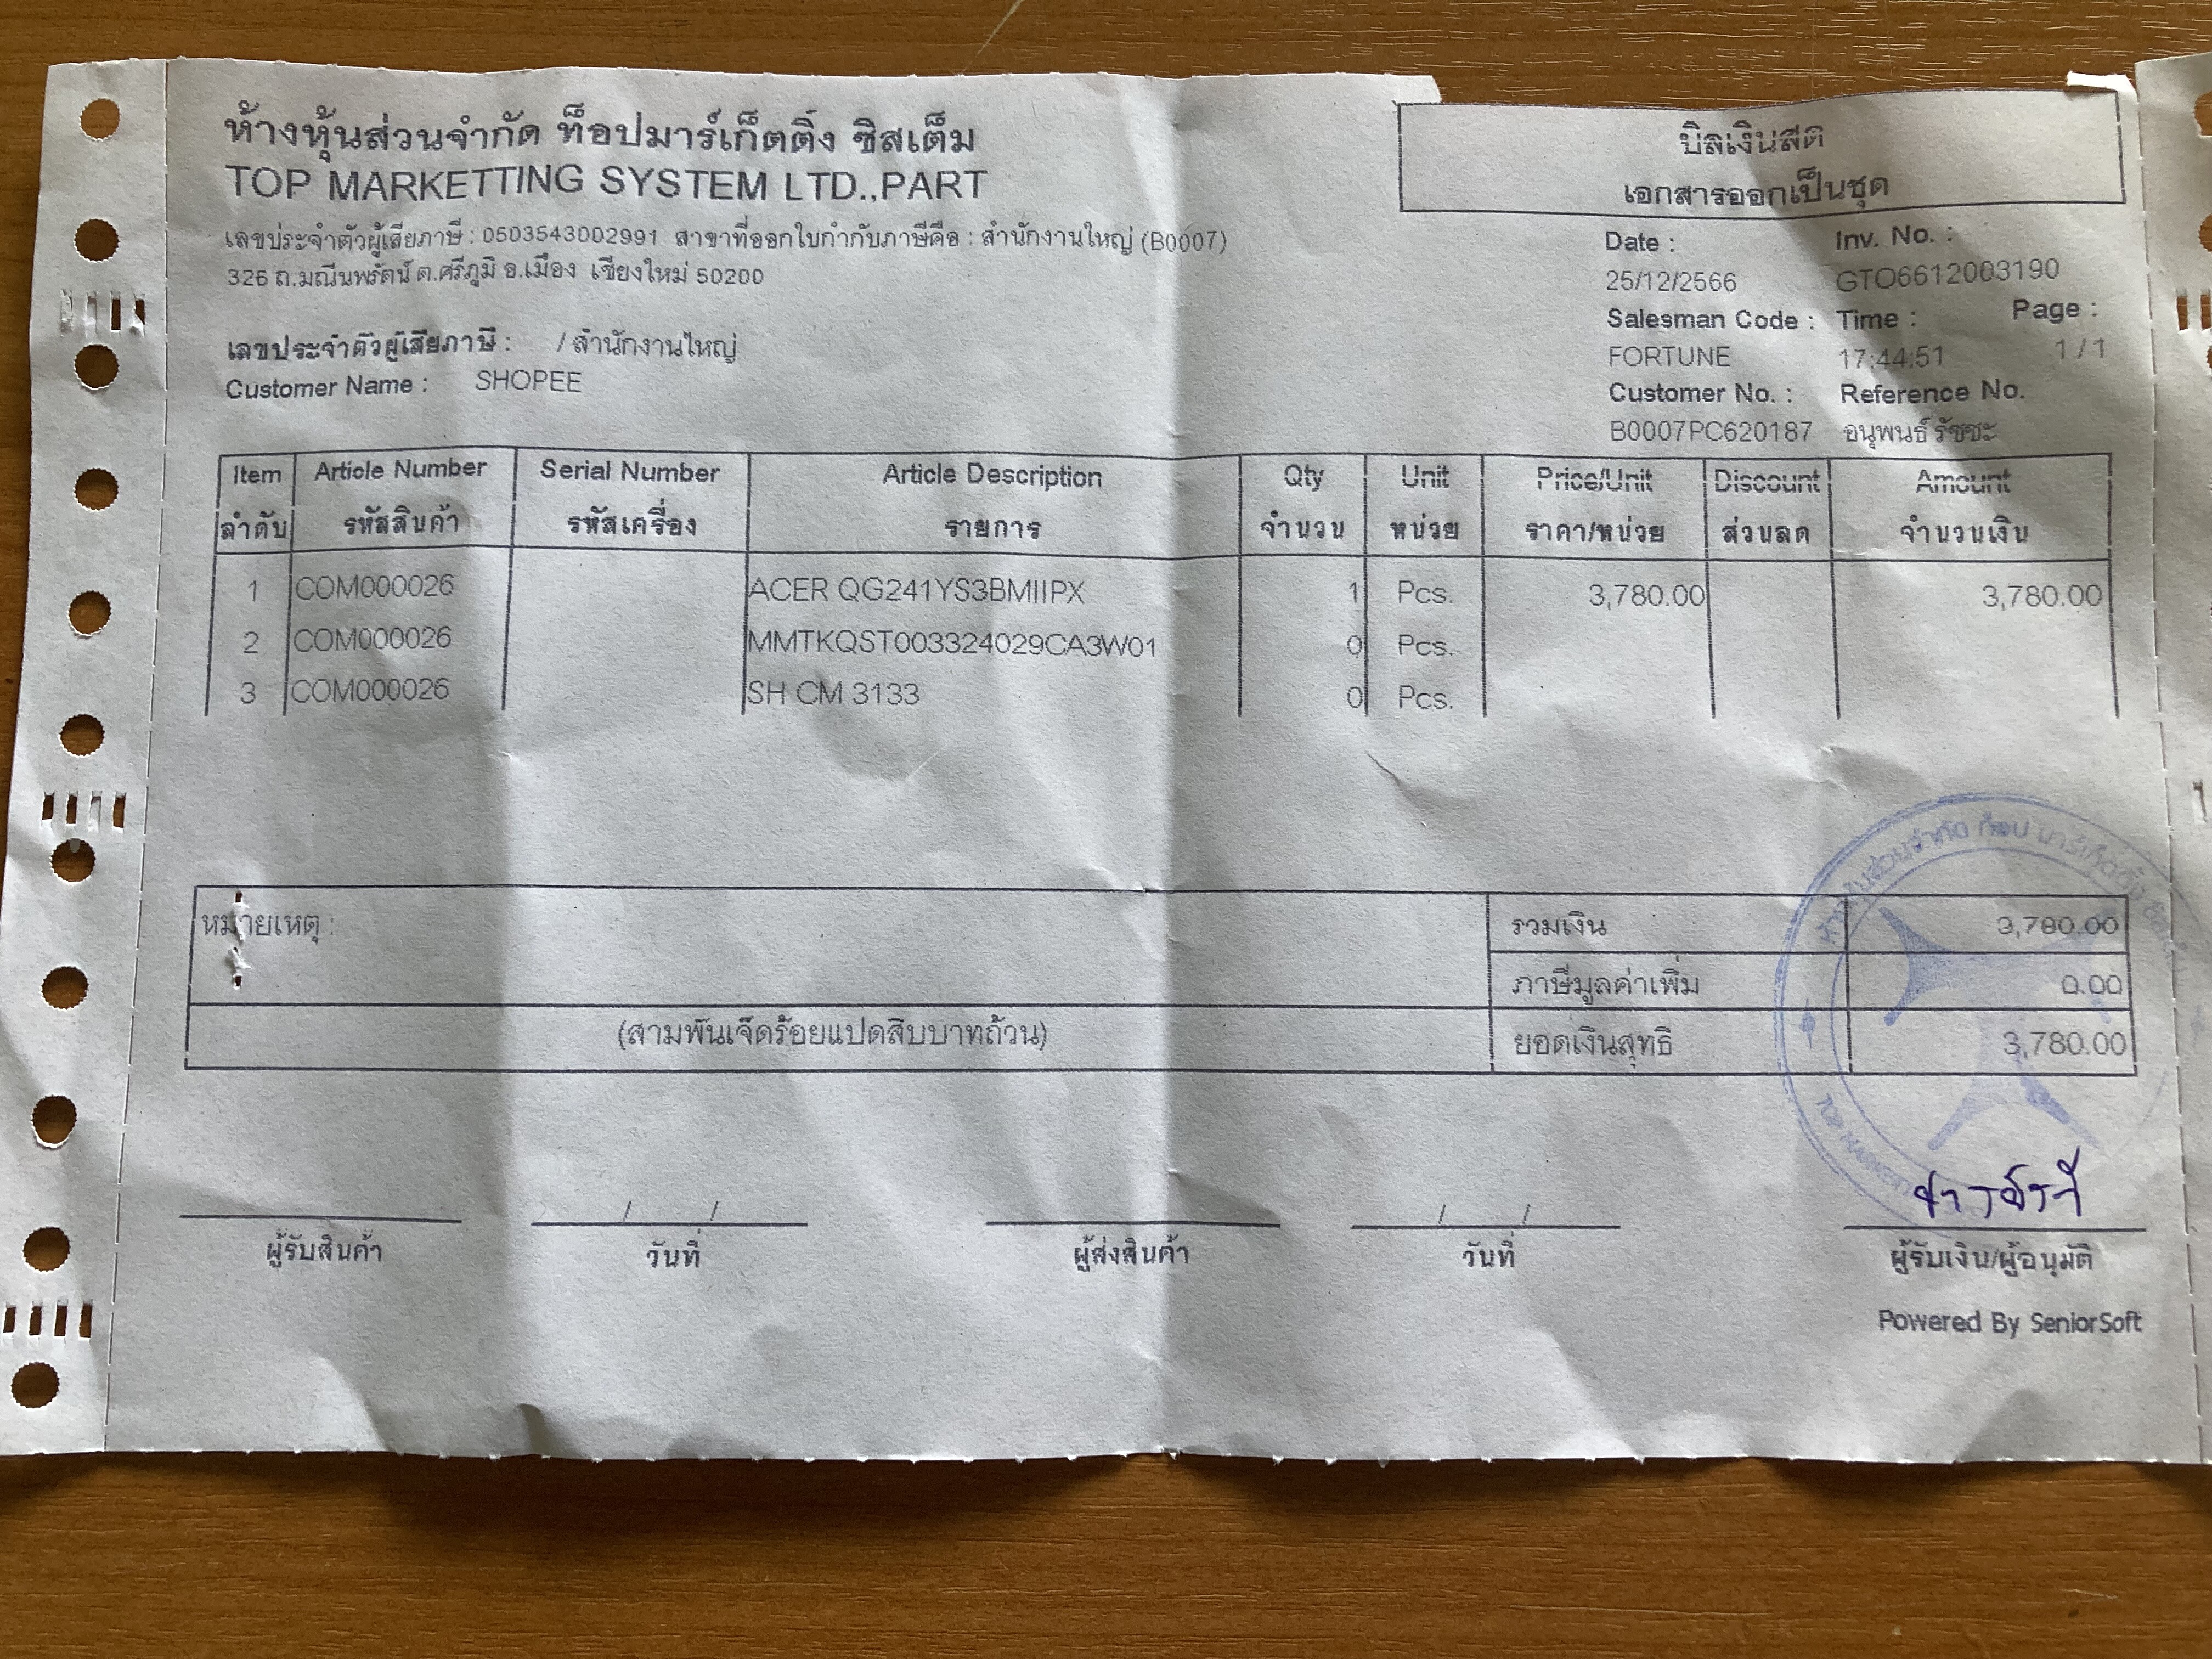 ห้างหุ้นส่วนจำกัด ท็อปมาร์เก็ตติ้ง ซิสเต็ม
TOP MARKETTING SYSTEM LTD.,PART
เลขประจำตัวผู้เสียภาษี : 0503543002991 สาขาที่ออกใบกำกับภาษีคือ : สำนักงานใหญ่ (B0007)
326 ถ.มณีนพรัตน์ ต.ศรีภูมิ อ.เมือง เชียงใหม่ 50200
เลขประจำตัวผู้เสียภาษี : / สำนักงานใหญ่
Customer Name : SHOPEE
บิลเงินสด
เอกสารออกเป็นชุด
Date : Inv. No. :
25/12/2566 GTO6612003190
Salesman Code : Time : Page :
FORTUNE 17:44:51 1 / 1
Customer No. : Reference No.
B0007PC620187 อนุพนธ์ รัชชะ
Item Article Number Serial Number Article Description Qty Unit Price/Unit Discount Amount
ลำดับ รหัสสินค้า รหัสเครื่อง รายการ จำนวน หน่วย ราคา/หน่วย ส่วนลด จำนวนเงิน
1 COM000026 ACER QG241YS3BMIIPX 1 Pcs. 3,780.00 3,780.00
2 COM000026 MMTKQST003324029CA3W01 0 Pcs.
3 COM000026 SH CM 3133 0 Pcs.
หมายเหตุ : รวมเงิน 3,780.00
ภาษีมูลค่าเพิ่ม 0.00
(สามพันเจ็ดร้อยแปดสิบบาทถ้วน) ยอดเงินสุทธิ 3,780.00
/ / / /
ผู้รับสินค้า วันที่ ผู้ส่งสินค้า วันที่ ผู้รับเงิน/ผู้อนุมัติ
Powered By SeniorSoft